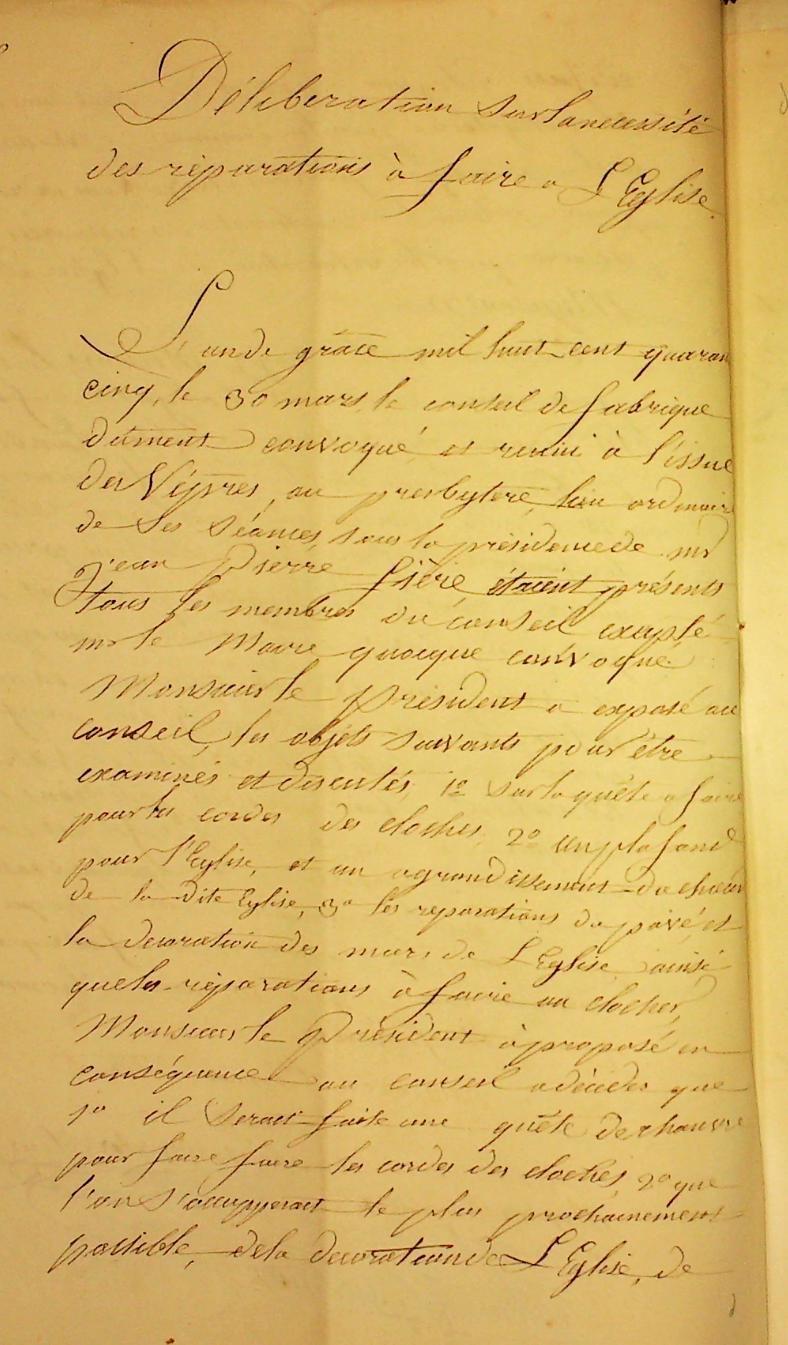 Délibération sur la necessité
des réparations à faire a L'Eglise.
L'an de grâce mil huit cent quaran
cinq, le 30 mars, le conseil de fabrique
dûment convoqué et reuni à l'issue
des Vêpres, au presbytere, lieu ordinaire
de ses séances, sous la présidence de mr
Jean Pierre étaient présents
tous les membres du conseil excepté
mr le Maire quoique convoqué.
Monsieur le Président a exposé au
conseil, les objets suivants pour être
examinés et discutés 1º sur la quête a faire
pour les cordes des cloches, 2º un plafond
pour l'Eglise, et un agrandissement du chœur
de la dite Eglise, 3º les reparations du pavé et
la decoration des murs de L'Eglise ainsi
que les réparations à faire au clocher,
Monsieur le Président à proposé en
conséquence au conseil a décidés que
1º il serait faite une quête de chanvre
pour faire faire les cordes des cloches, 2º que
l'on s'occupperait le plus prochainement
possible, de la decoration de L'Eglise, de